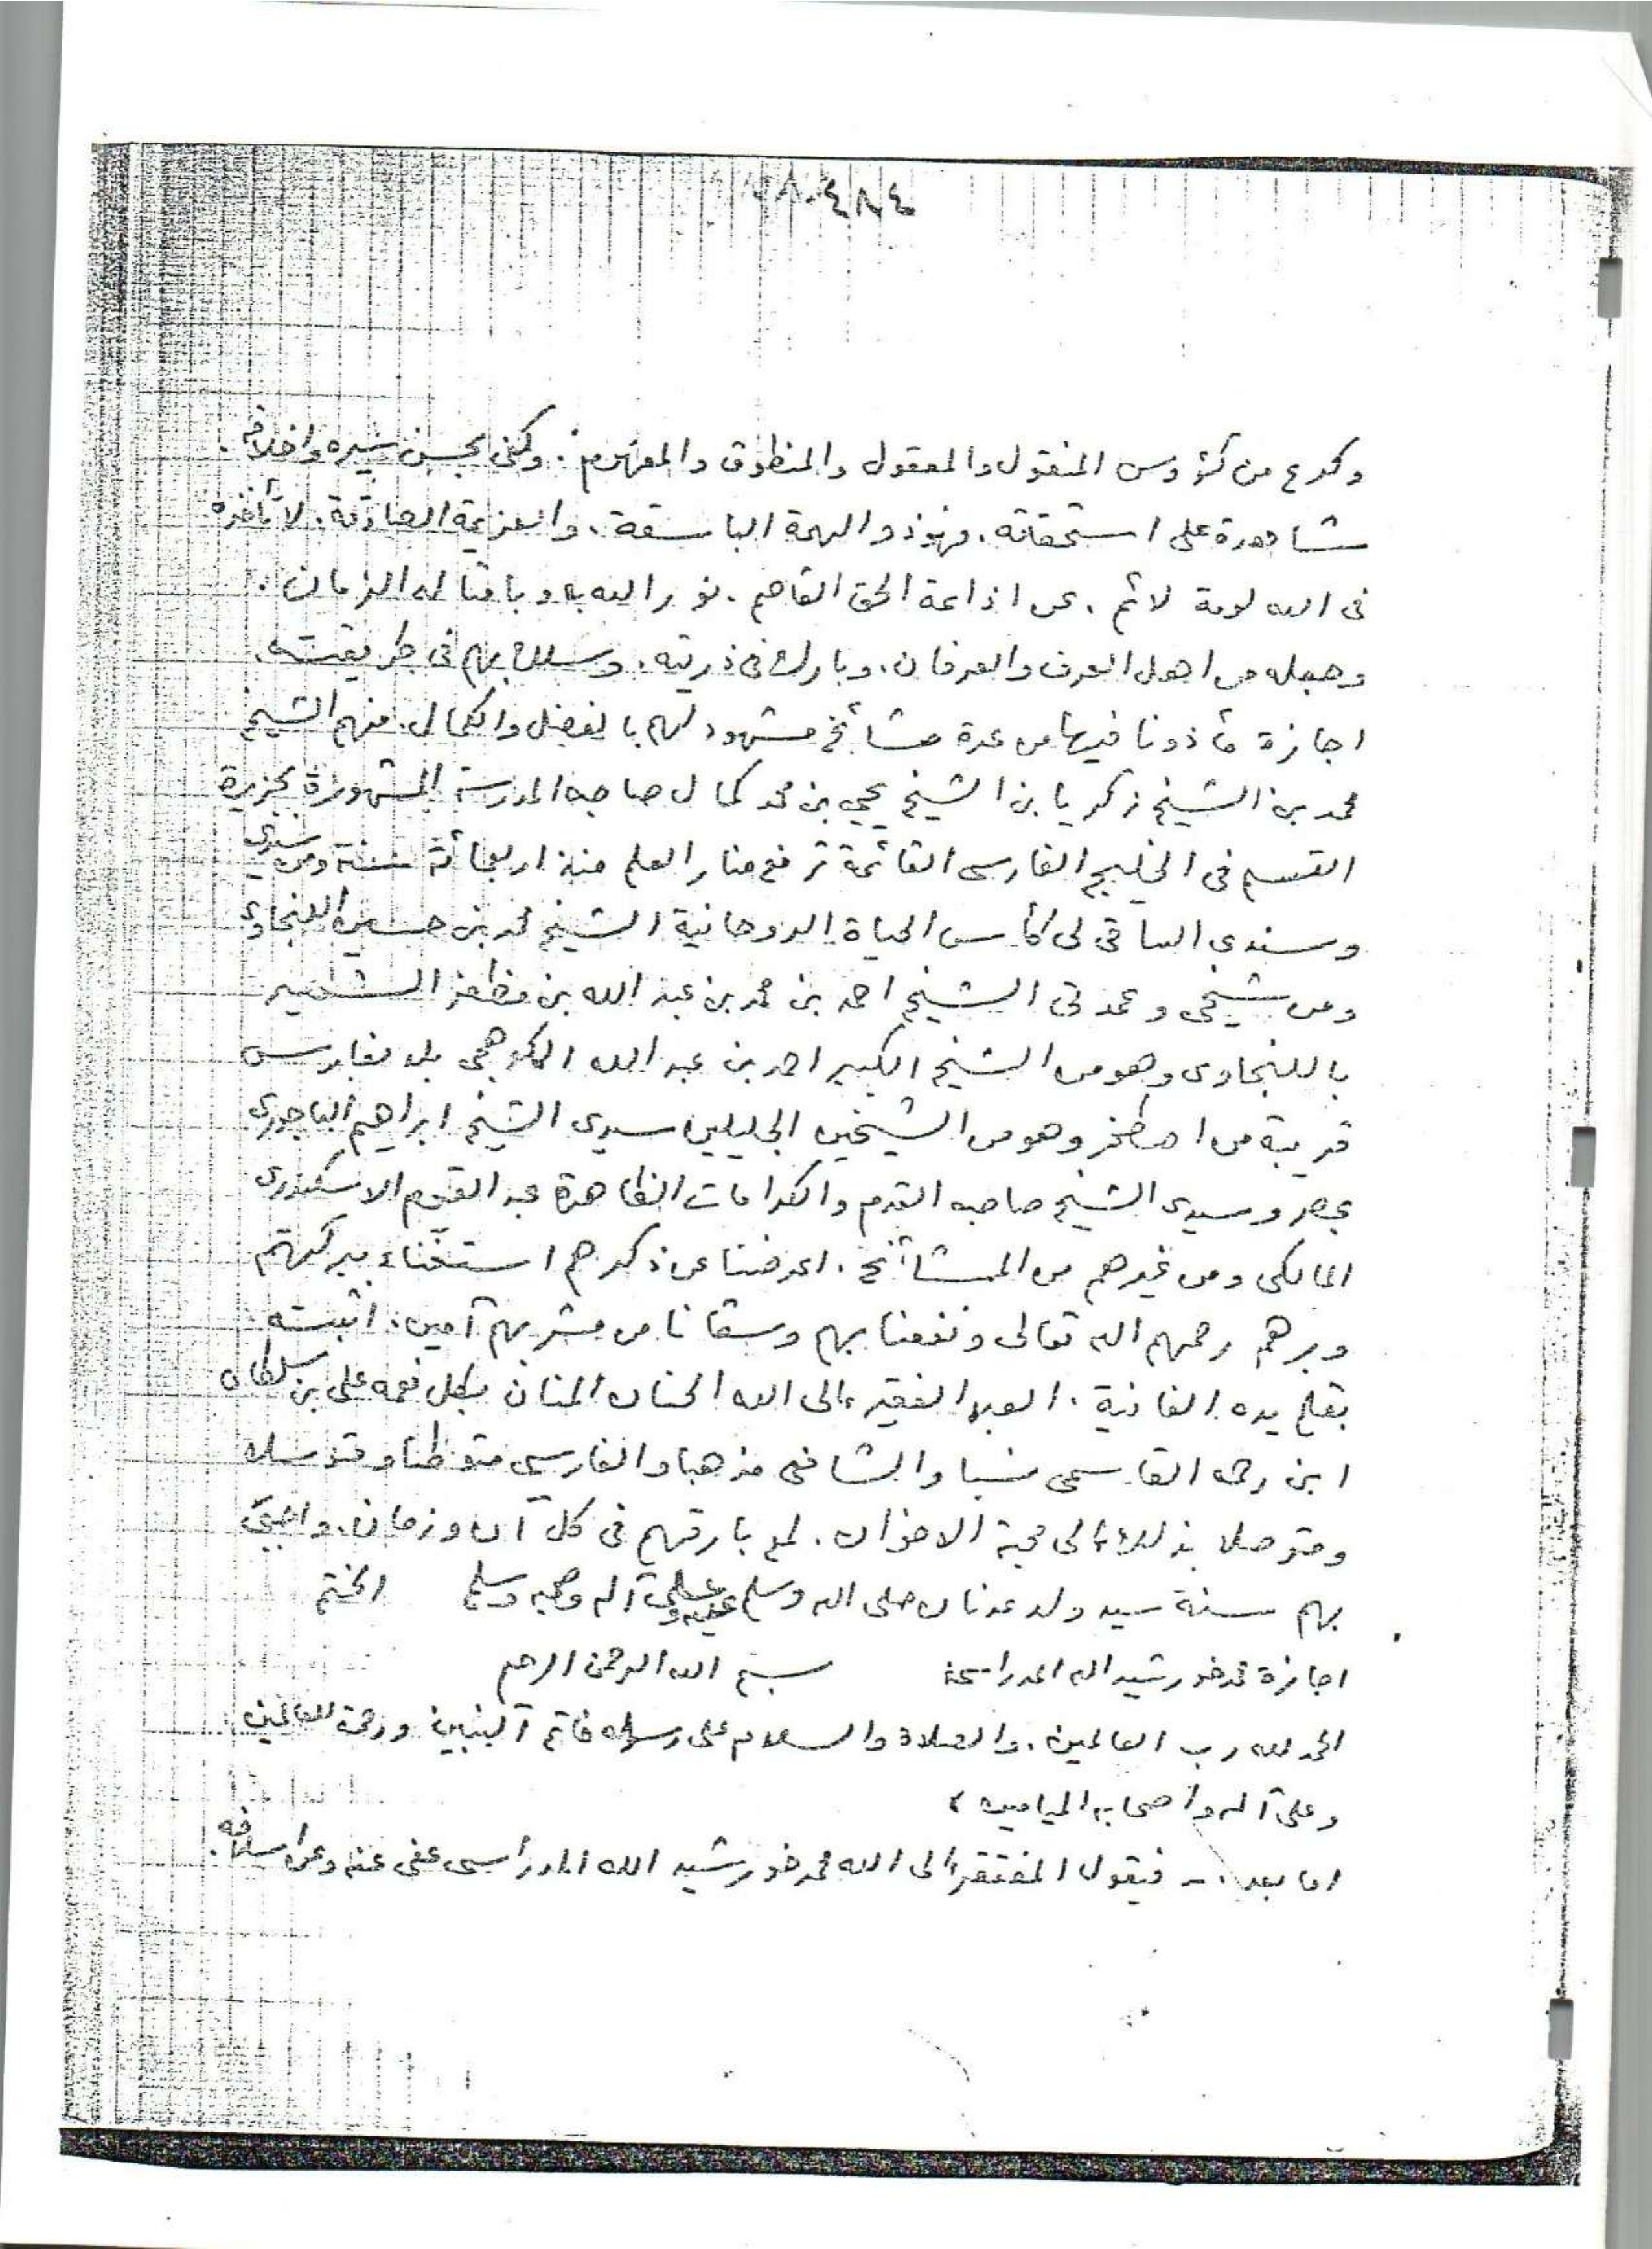 وكرع من كؤوس المنقول والمعقول والمنطوق والمفهوم. وكفى بحسن سيره واخلاقه.
شاهدة على استحقاقه. فهو ذو الهمة الباسقة. والعزيمة الصادقة. لا تأخذه
فى الله لومة لائم. عن اذاعة الحق القاصم. نور الله به وبامثاله الزمان.
وجعله من اهل العرف والعرفان. وبارك فى ذريته. وسلك بهم فى طريقته
اجازة مأذونا فيها من عدة مشائخ مشهود لهم بالفضل والكمال. منهم الشيخ
محمد بن الشيخ زكريا بن الشيخ يحيى بن محمد كمال صاحب المدرسة المشهورة بجزيرة
القسم فى الخليج الفارسى القائمة ترفع منار العلم منذ اربعمائة سنة ومن سيدى
وسندى الساقى لى كأس الحياة الروحانية الشيخ محمد بن حسين اللنجاوى
وعن شيخى وعمدتى الشيخ احمد بن محمد بن عبد الله بن مظفر الشهير
باللنجاوى وهو من الشيخ الكبير احمد بن عبد الله الكوهجى بلد بفارس
قريبة من اصطخر وهو من الشيخين الجليلين سيدى الشيخ ابراهيم الباجورى
بمصر وسيدى الشيخ صاحب القدم والكرامات الظاهرة عبد القيوم الاسكندرى
المالكى ومن غيرهم من المشائخ. اعرضنا عن ذكرهم استغناء ببركتهم
وبرهم رحمهم الله تعالى ونفعنا بهم وسقانا من مشربهم آمين. اثبته
بقلم يده الفانية. العبد الفقير الى الله الحنان المنان بكل نعمه على بن سلطان
ابن رحمه القاسمى نسبا والشافعى مذهبا والفارسى متوطنا وتوسلا
ومتوصلا بذلك الى محبة الاخوان. لمع بارقهم فى كل آن وزمان. واحيى
بهم سنة سيد ولد عدنان صلى الله وسلم عليه وعلى آله وصحبه وسلم الختم
اجازة محمد خورشيد الله المدراسى بسم الله الرحمن الرحيم
الحمد لله رب العالمين. والصلاة والسلام على رسوله خاتم النبيين ورحمة للعالمين
وعلى آله واصحابه الميامين،
اما بعد. - فيقول المفتقر الى الله محمد خورشيد الله المدراسى عفى عنه وعن اسلافه.